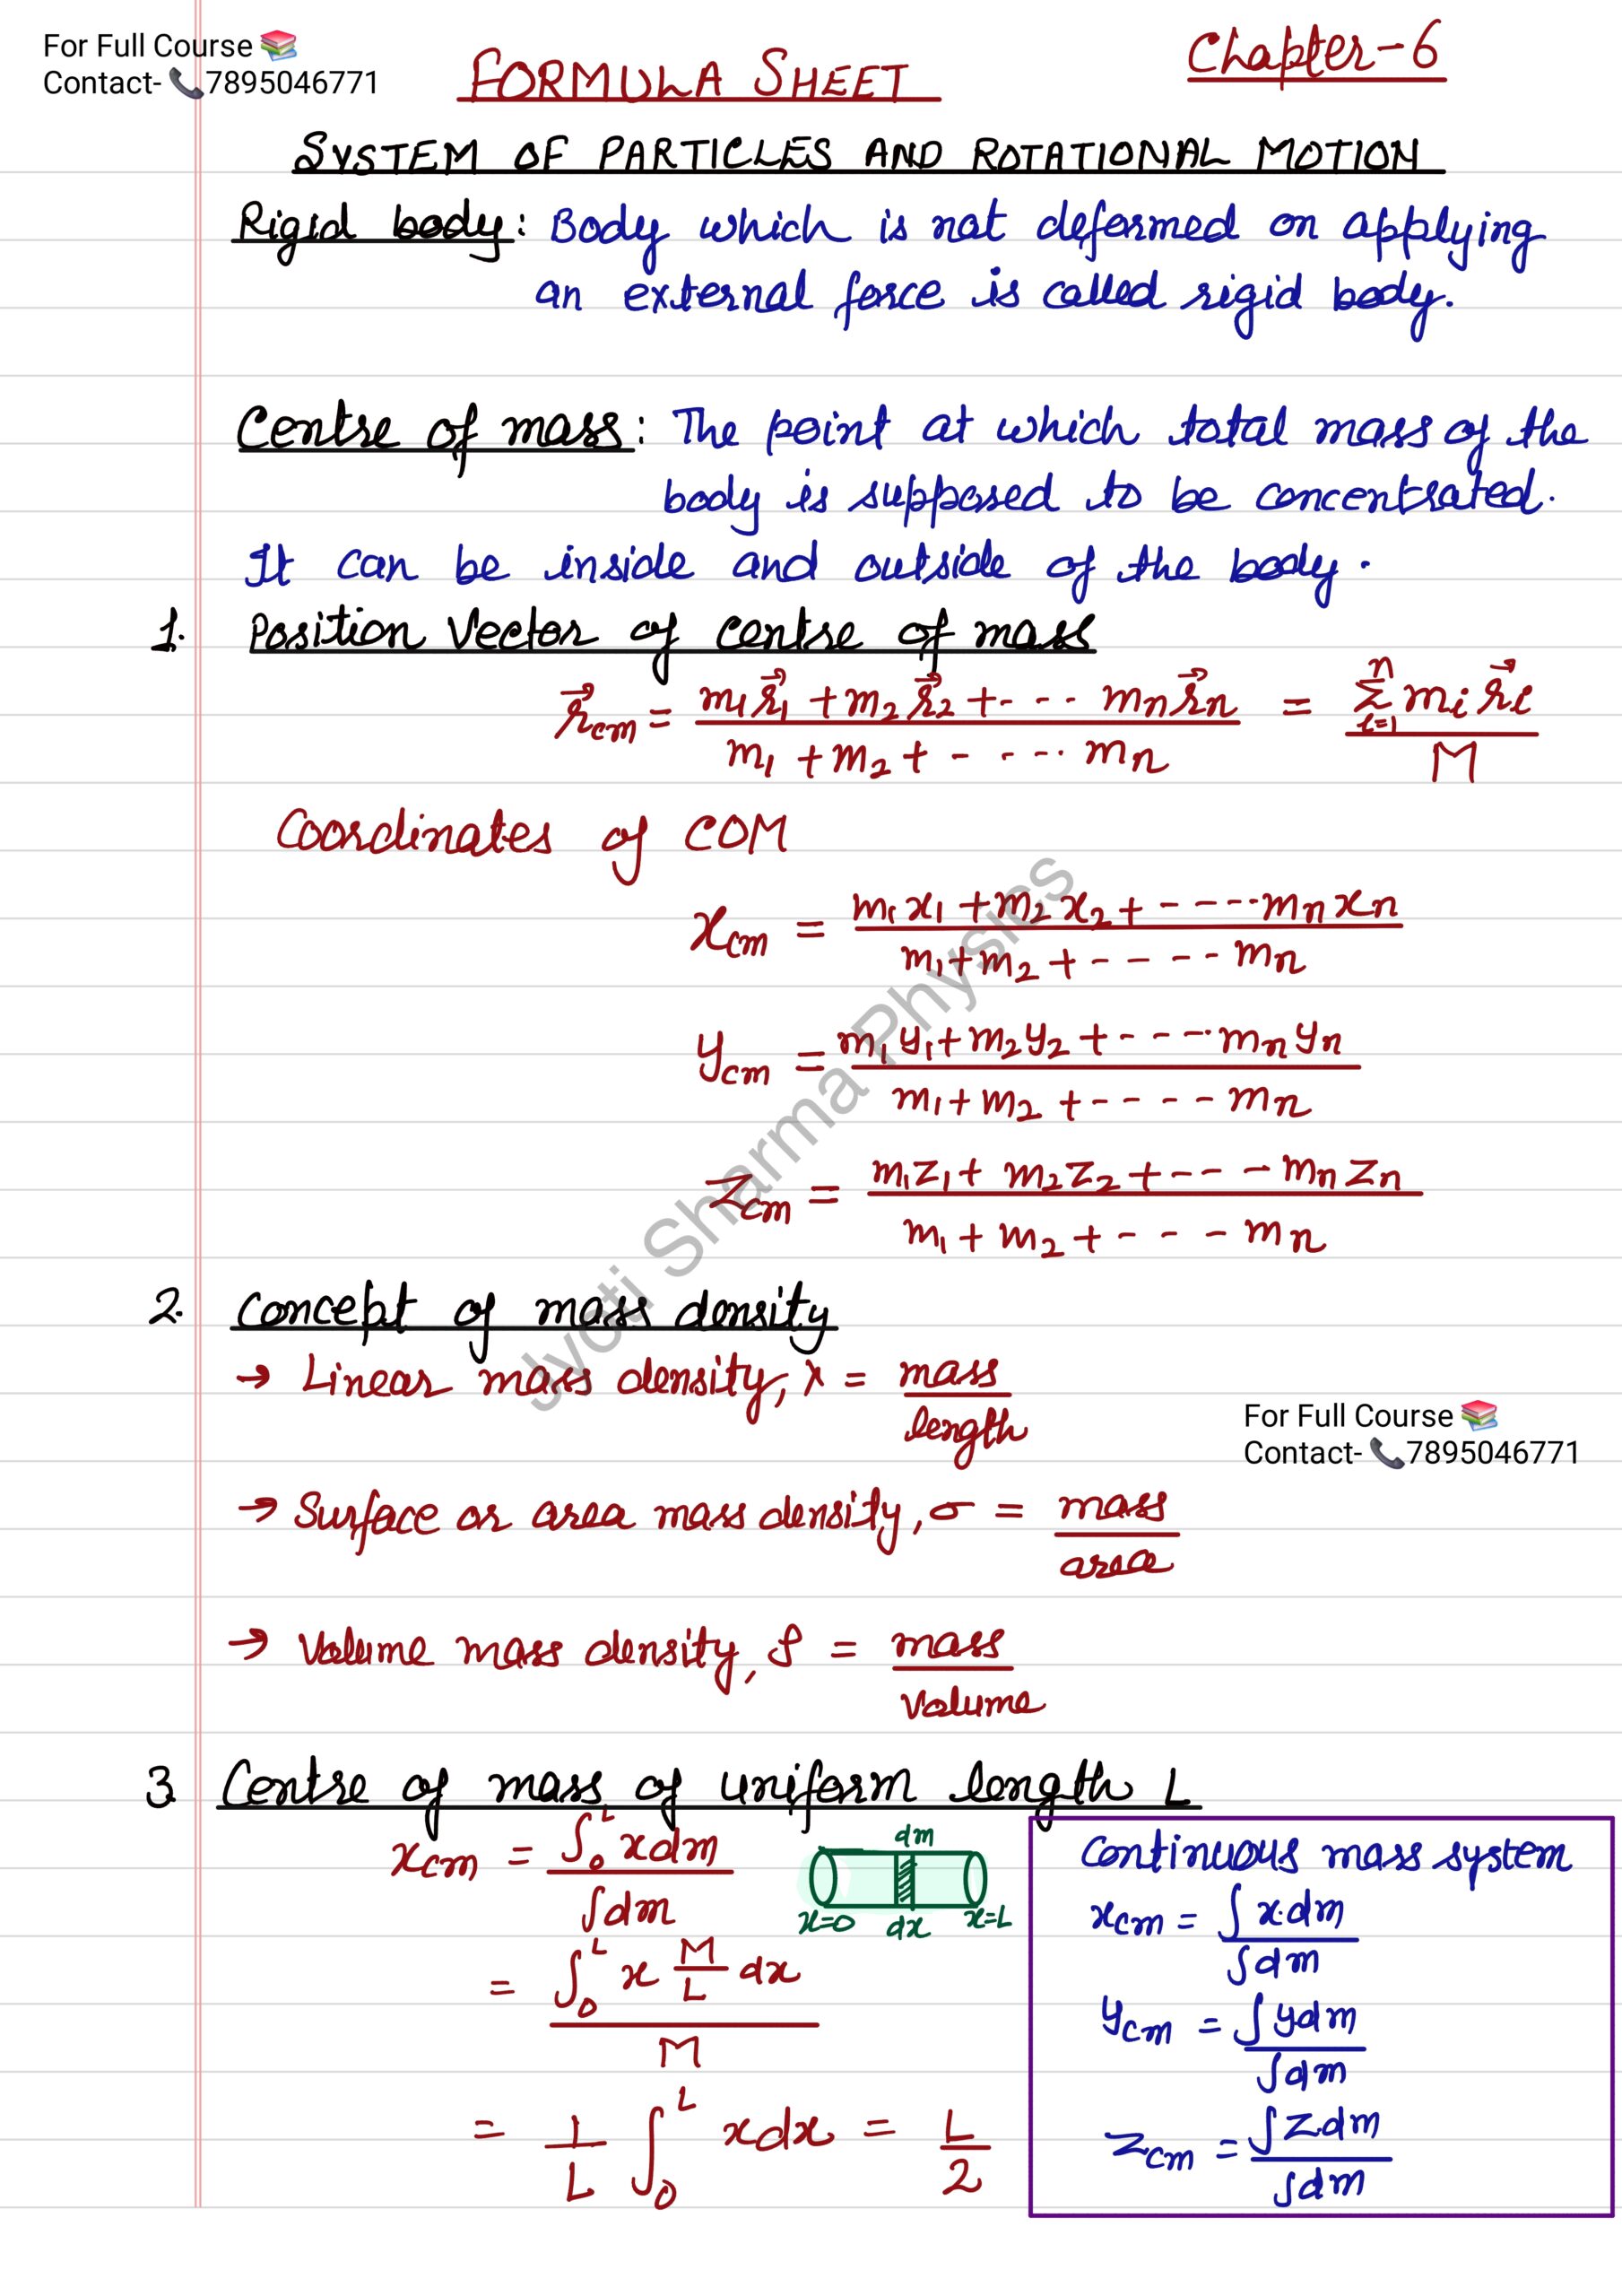 For Full Course 📚
Contact- 📞7895046771
Chapter-6
FORMULA SHEET
SYSTEM OF PARTICLES AND ROTATIONAL MOTION
Rigid body: Body which is not deformed on applying
an external force is called rigid body.
Centre of mass: The point at which total mass of the
body is supposed to be concentrated.
It can be inside and outside of the body.
1. Position Vector of centre of mass
r⃗cm = (m₁r⃗₁ + m₂r⃗₂ + - --- mₙr⃗ₙ)/(m₁ + m₂ + - ---- mₙ) = (Σⁿᵢ₌₁ mᵢ r⃗ᵢ)/M
Coordinates of COM
xcm = (m₁x₁ + m₂x₂ + ----- mₙxₙ)/(m₁ + m₂ + ----- mₙ)
ycm = (m₁y₁ + m₂y₂ + ----- mₙyₙ)/(m₁ + m₂ + ----- mₙ)
zcm = (m₁z₁ + m₂z₂ + ---- mₙzₙ)/(m₁ + m₂ + ---- mₙ)
Jyoti Sharma Physics
2. Concept of mass density
→ Linear mass density, λ = mass/length
For Full Course 📚
Contact- 📞7895046771
→ Surface or area mass density, σ = mass/area
→ Volume mass density, ρ = mass/volume
3. Centre of mass of uniform length L
xcm = ∫₀ᴸ xdm / ∫dm
dm
x=0 dx x=L
= ∫₀ᴸ x (M/L) dx / M
= 1/L ∫₀ᴸ xdx = L/2
Continuous mass system
xcm = ∫x.dm / ∫dm
ycm = ∫ydm / ∫dm
zcm = ∫z.dm / ∫dm